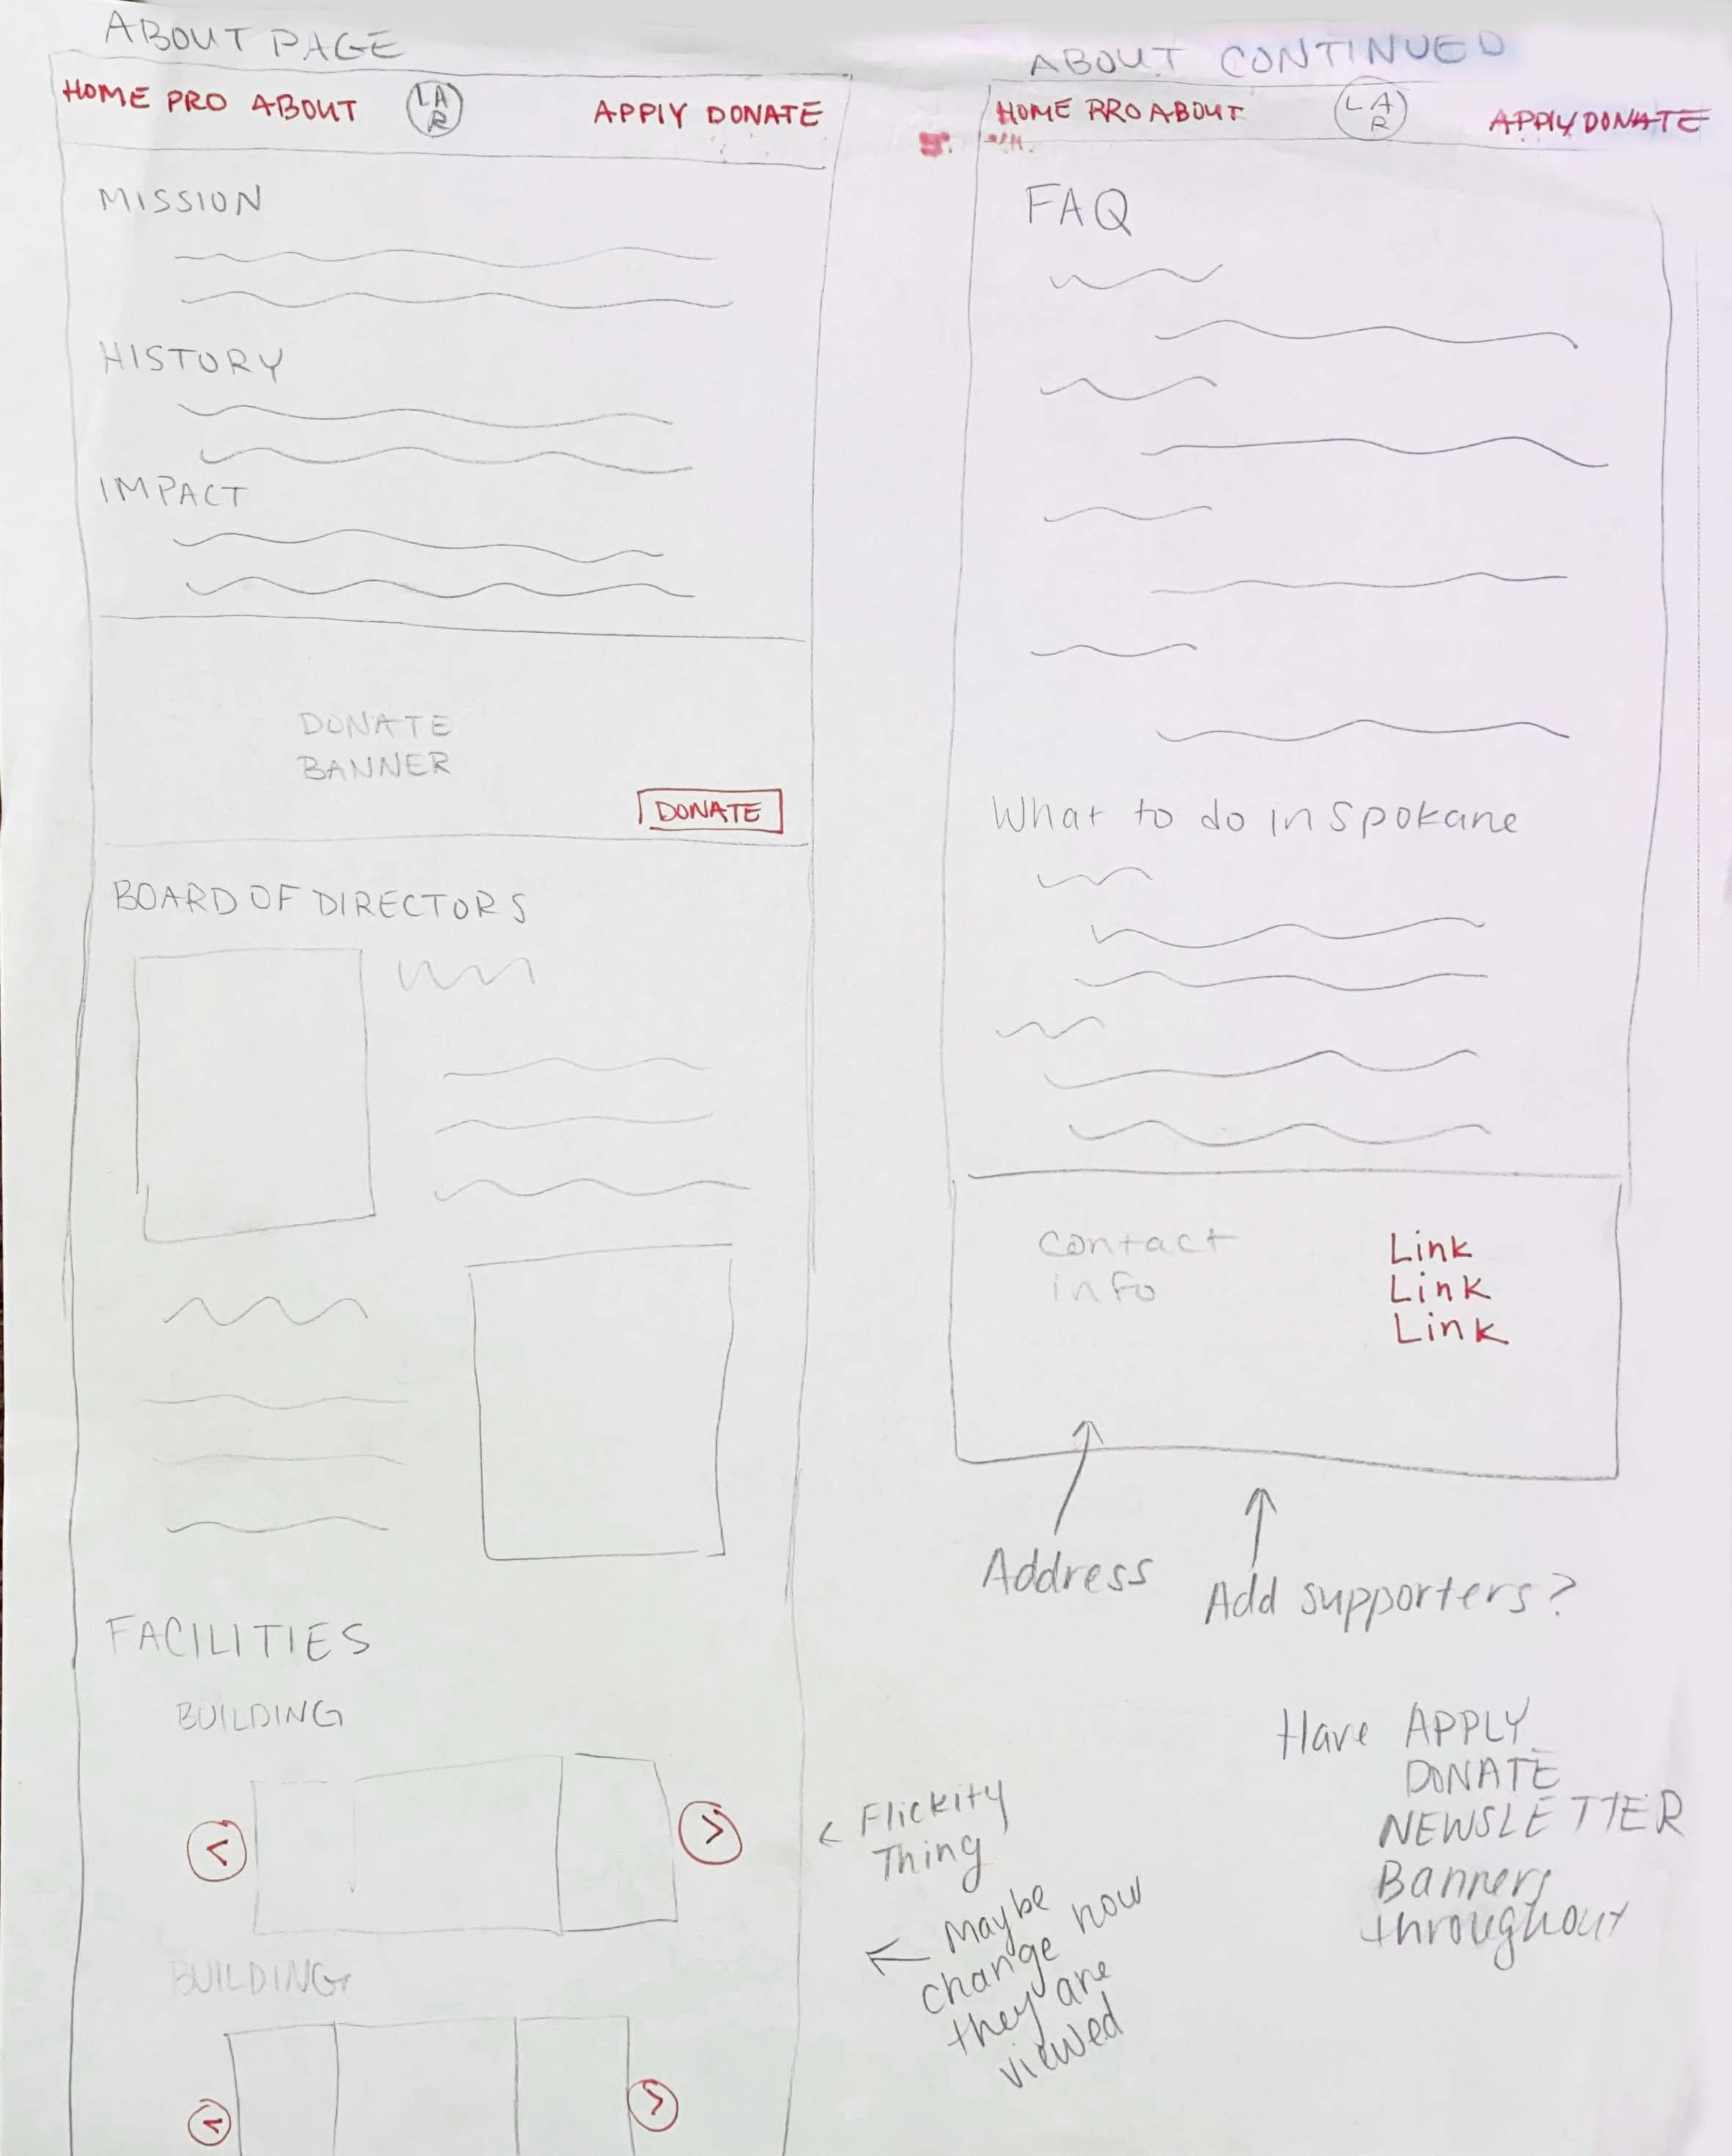 ABOUT PAGE
HOME PRO ABOUT LAR APPLY DONATE
MISSION
HISTORY
IMPACT
DONATE
BANNER
DONATE
BOARD OF DIRECTORS
FACILITIES
BUILDING
< >
BUILDING
< >
← Flickity
Thing
← Maybe
change how
they are
viewed
ABOUT CONTINUED
HOME PRO ABOUT LAR APPLY DONATE
FAQ
What to do in Spokane
Contact
info
Link
Link
Link
Address
Add supporters?
Have APPLY
DONATE
NEWSLETTER
Banners
throughout